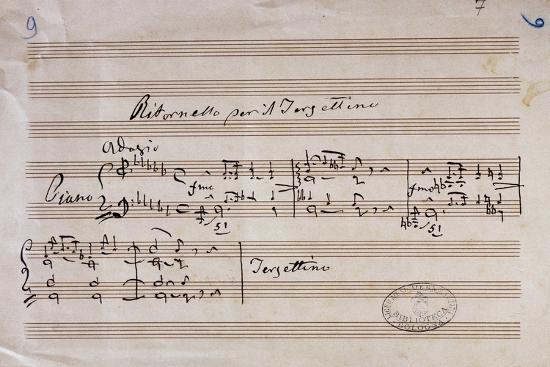 9 7 6
Ritornello per il Terzettino
Adagio
Piano
fmo fmo
51 51
Terzettino
BIBLIOTECA
BOLOGNA